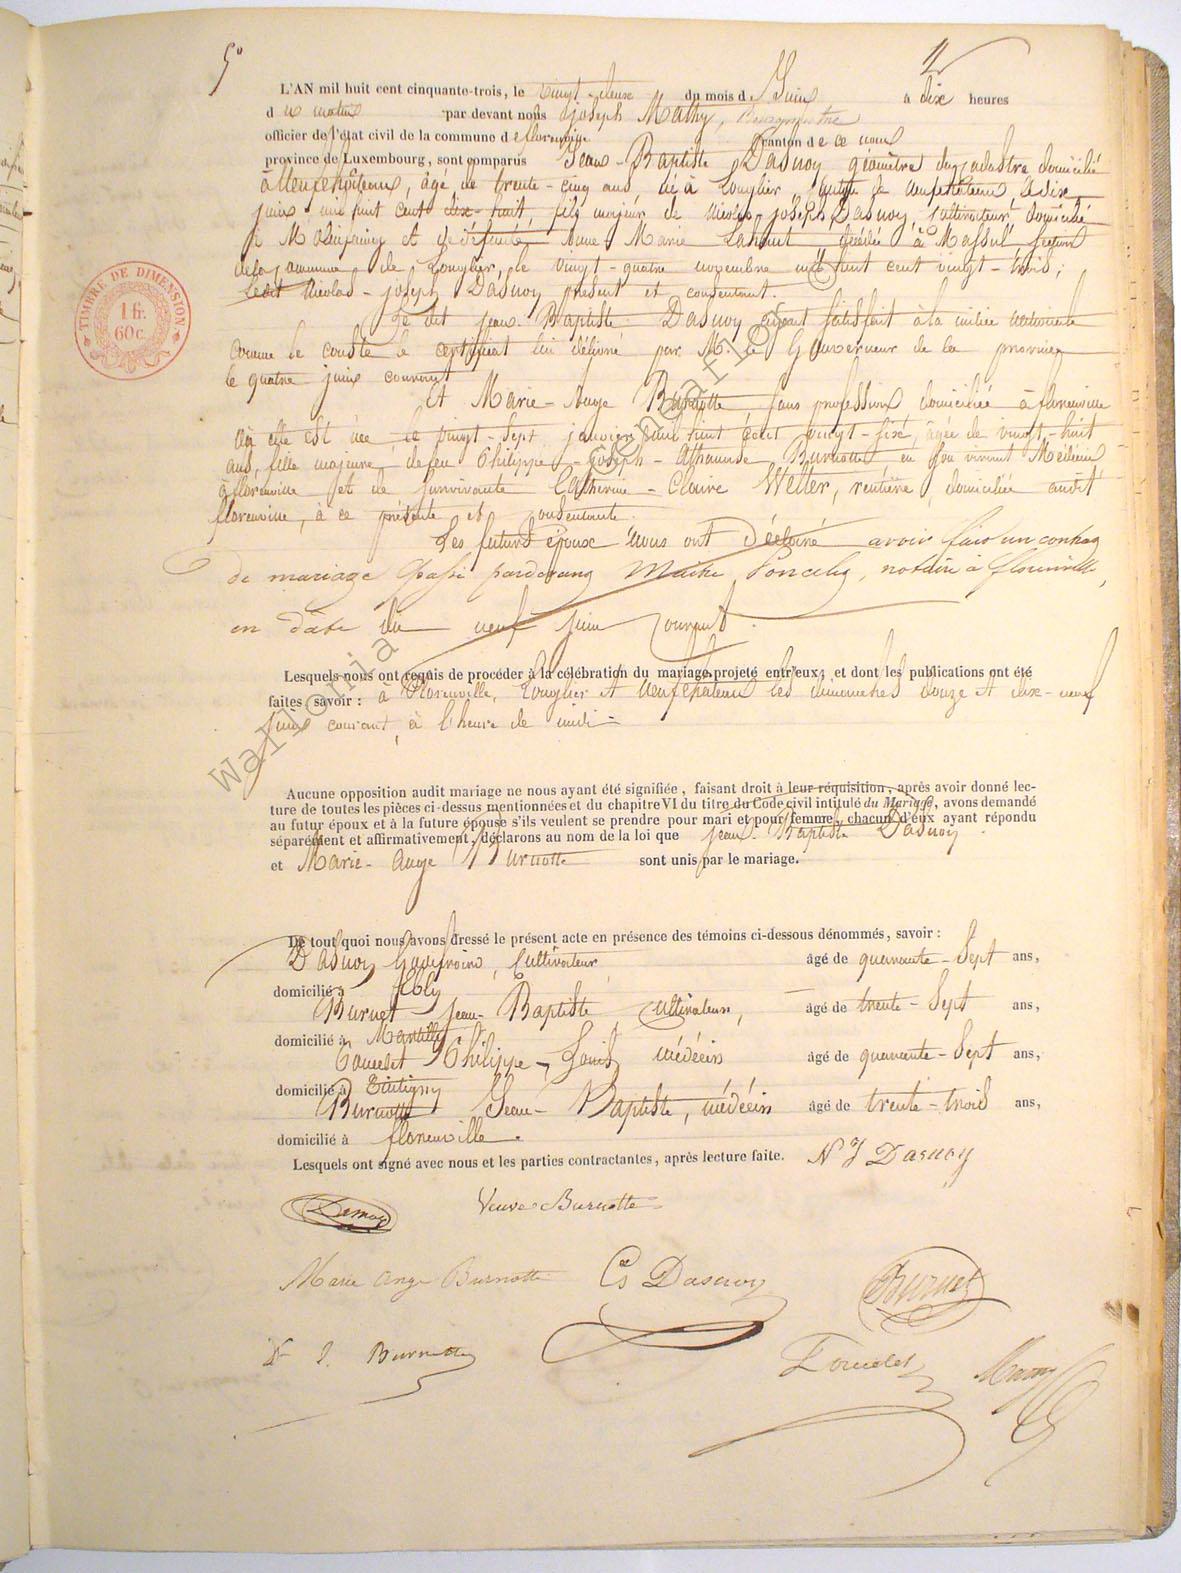 5°
11
L'AN mil huit cent cinquante-trois, le vingt-deux du mois de Juin à dix heures
du matin par devant nous Joseph Mathy, Bourgmestre
officier de l'état civil de la commune de florenville canton de ce nom
province de Luxembourg, sont comparus Jean-Baptiste Dasnoy, géomètre du cadastre domicilié
à Neufchâteau, âgé de trente-cinq ans, né à Longlier, de neufchâteau le dix
juin mil huit cent dix-huit, fils majeur de Nicolas-Joseph Dasnoy, cultivateur, domicilié
à et de défunte Anne-Marie Laurent, décédée à Massul, section
de la commune de Longlier, le vingt-quatre novembre mil huit cent vingt-trois;
Ledit Nicolas-joseph Dasnoy présent et consentant.
Le dit jean-Baptiste Dasnoy ayant satisfait à la milice nationale
comme le conste le certificat lui délivré par M. le Gouverneur de la province
le quatre juin courant
et Marie-Ange Burnotte sans profession domiciliée à florenville
où elle est née le vingt-sept janvier mil huit cent vingt-six, âgée de vingt-huit
ans, fille majeure de feu Philippe-Joseph-Athanase Burnotte en son vivant Médecin
à florenville et de survivante Catherine-Claire Welter, rentière, domiciliée audit
florenville, à ce présente et consentante.
Les futurs époux nous ont déclaré avoir fait un contrat
de mariage passé pardevant Maître Poncelet, notaire à florenville,
en date du neuf juin courant.
Lesquels nous ont requis de procéder à la célébration du mariage projeté entr'eux; et dont les publications ont été
faites, savoir: à Florenville, Longlier et Neufchateau les dimanches douze et dix-neuf
juin courant, à l'heure de midi
Aucune opposition audit mariage ne nous ayant été signifiée, faisant droit à leur réquisition, après avoir donné lec-
ture de toutes les pièces ci-dessus mentionnées et du chapitre VI du titre du Code civil intitulé du Mariage, avons demandé
au futur époux et à la future épouse s'ils veulent se prendre pour mari et pour femme, chacun d'eux ayant répondu
séparément et affirmativement, déclarons au nom de la loi que Jean-Baptiste Dasnoy
et Marie-Ange Burnotte sont unis par le mariage.
De tout quoi nous avons dressé le présent acte en présence des témoins ci-dessous dénommés, savoir:
Dasnoy, Cultivateur, âgé de quarante-sept ans,
domicilié à Ebly
Burnet Jean-Baptiste cultivateur, âgé de trente-sept ans,
domicilié à Muntilly
Philippe-Louis, médecin âgé de quarante-sept ans,
domicilié à Tintigny
Burnotte Jean-Baptiste, médecin âgé de trente-trois ans,
domicilié à florenville.
Lesquels ont signé avec nous et les parties contractantes, après lecture faite. N J Dasnoy
Veuve Burnotte
Marie Ange Burnotte Dasnoy Burnet
Burnotte
TIMBRE DE DIMENSION
1 fr.
60 c.
Wallonia Genealnet ©